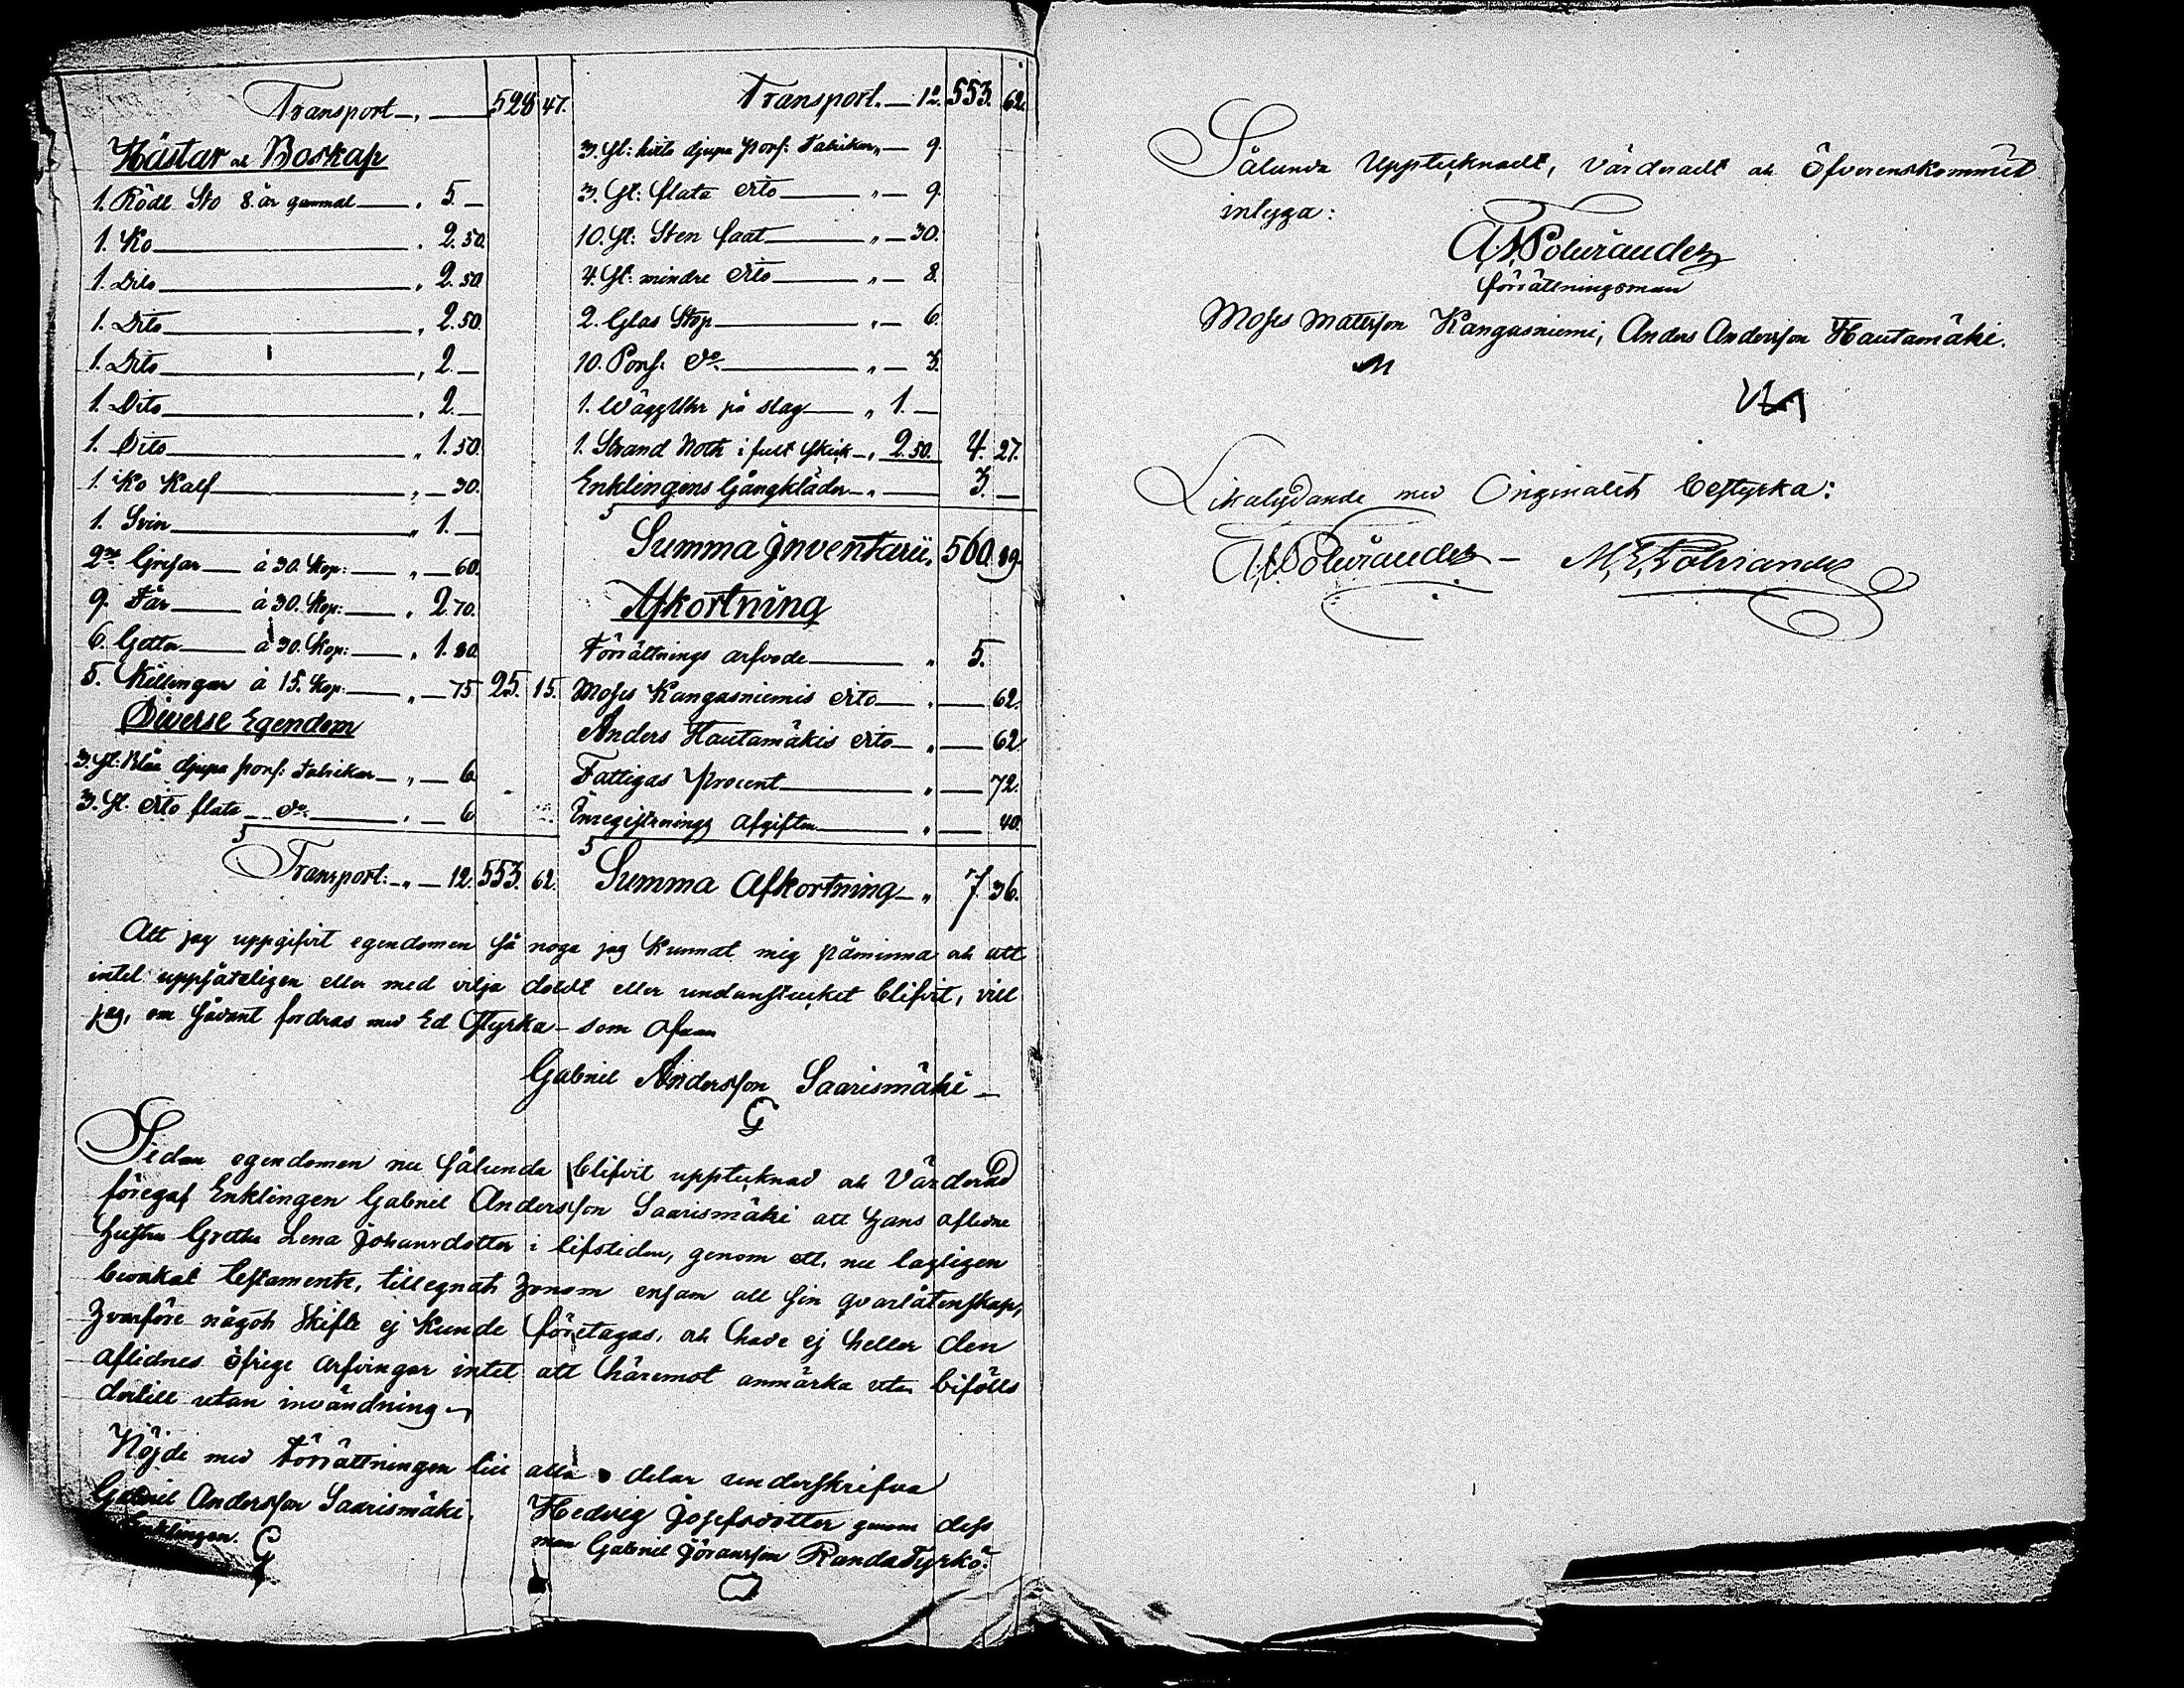 Transport 528 47.
Hästar och Boskap
1. Rödt Sto 8. år gammal „ 5. —
1. Ko „ 2. 50.
1. Dito „ 2. 50
1. Dito „ 2. 50
1. Dito „ 2. —
1. Dito „ 2. —
1. Dito „ 1. 50.
1. Ko Kalf „ — 30.
1. Svin „ 1. —
2ne Grisar à 30. Kop: „ — 60.
9. Får à 30. Kop: „ 2. 70.
6. Getter à 30. Kop: „ 1. 80.
5. Killingar à 15. Kop: „ — 75 25. 15.
Diverse Egendom
3. St: Blåa djupa porsl: Talrikar „ — 6
3. St. dito flata do „ — 6
Transport: „ — 12. 553. 62.
Transport. — 12. 553. 62.
3. St: hvita djupa porsl: Talrikar „ — 9.
3. St: flata dito „ — 9.
10. St: Sten faat „ — 30.
4. St: mindre dito „ — 8.
2. Glas Stop „ — 6.
10. Porsl. do „ — 3.
1. Wägg Uhr på slag „ 1. —
1. Strand Noth i fult skick „ 2. 50. 4. 27.
Enklingens Gångkläder „ 3. —
Summa Inventarii. 560. 89.
Afkortning
Förrättnings arfvode „ 5.
Moses Kangasniemis dito „ — 62.
Anders Hautamäkis dito „ — 62
Fattigas procent „ — 72.
Inregistrerings afgiften „ — 40.
Summa Afkortning „ 7. 36.
Att jag uppgifvit egendomen så noga jag kunnat mig påminna och att
intet uppsåteligen eller med vilja doldt eller undanstucket blifvit, vill
jag, om så fordras med Ed styrka — som ofvan
Gabriel Andersson Saarismäki —
G
Sedan egendomen nu sålunda blifvit upptecknad och Värderad
föregaf Enklingen Gabriel Andersson Saarismäki att hans aflidne
hustru Gretha Lena Johansdotter i lifstiden, genom ett, nu lagligen
bevakat testamente, tillegnat honom ensam all sin qvarlåtenskap,
hvarföre något skifte ej kunde företagas, och hade ej heller den
aflidnes öfrige arfvingar intet att häremot anmärka utan biföllo
dertill utan invändning
Nöjde med Förrättningen till alla delar underskrifva
Gabriel Andersson Saarismäki. Hedvig Josefsdotter genom dess
Enklingen. man Gabriel Jöransson RandaTyrkö.
G
Sålunda Upptecknadt, Värderadt och Öfverenskommit
intyga:
A. Polviander
förrättningsman
Moses Matsson Kangasniemi, Anders Andersson Hautamäki.
Likalydande med Originalet bestyrka:
A. Polviander — M. E. Polviander